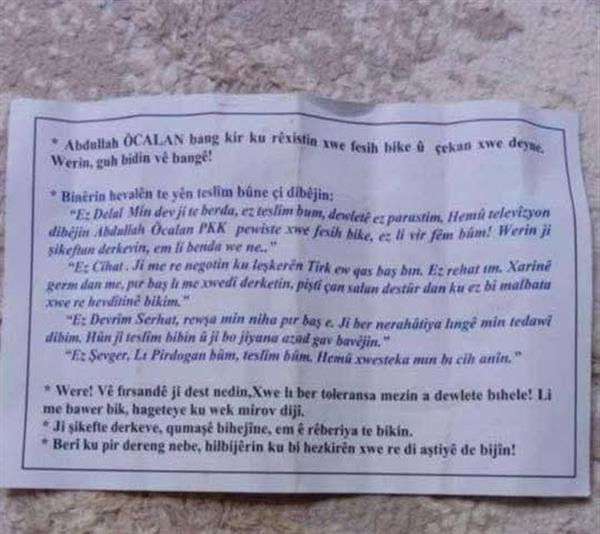 * Abdullah ÖCALAN bang kir ku rêxistin xwe fesih bike û çekan xwe deyne.
Werin, guh bidin vê bangê!
* Binêrin hevalên te yên teslîm bûne çi dibêjin:
“Ez Delal Min dev ji te berda, ez teslîm bum, dewletê ez parastim. Hemû televîzyon
dibêjin Abdullah Öcalan PKK pewiste xwe fesih bike, ez li vir fêm bûm! Werin ji
şikeftan derkevin, em li benda we ne..”
“Ez Cîhat . Ji me re negotin ku leşkerên Tirk ew qas baş bın. Ez rehat ım. Xarinê
germ dan me, pır baş lı me xwedî derketin, piştî çan salan destûr dan ku ez bi malbata
xwe re hevdîtinê bikim.”
“Ez Devrîm Serhat, rewşa min niha pır baş e. Ji ber nerahâtiya lıngê min tedawî
dibim. Hûn jî teslîm bibin û ji bo jiyana azad gav bavêjin.”
“Ez Şevger, Lı Pirdogan bûm, teslîm bûm. Hemû xwesteka mın bı cih anîn.”
* Were! Vê fırsandê ji dest nedin,Xwe lı ber toleransa mezin a dewlete bıhele! Li
me bawer bik, hageteye ku wek mirov dijî.
* Ji şikefte derkeve, qumaşê bihejîne, em ê rêberiya te bikin.
* Berî ku pir dereng nebe, hilbijêrin ku bi hezkirên xwe re di aştiyê de bijîn!